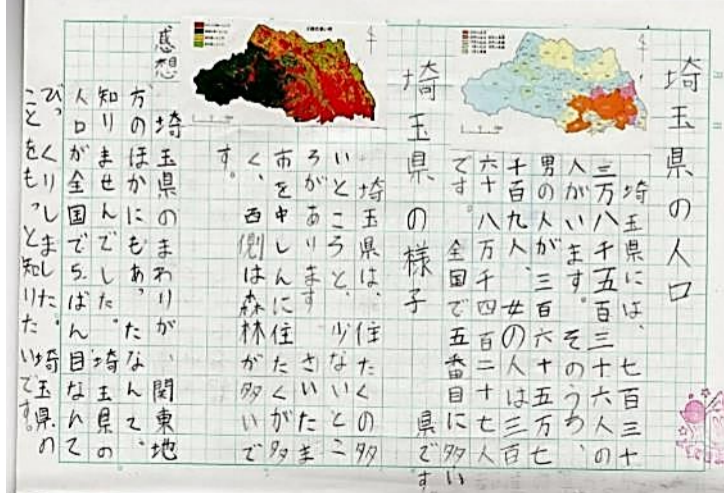 埼玉県の人口
埼玉県には、七百三十
三万八千五百三十六人の
人がいます。そのうち、
男の人が三百六十五万七
千百九人、女の人は三百
六十八万千四百二十七人
です。全国で五番目に多い
県です
埼玉県の様子
埼玉県は、住たくの多
いところと、少ないとこ
ろがあります さいたま
市を中しんに住たくが多
く、西側は森林が多いで
す。
感想
埼玉県のまわりが、関東地
方のほかにもあったなんて、
知りませんでした。埼玉県の
人口が全国で5ばん目なんて
びっくりしました。埼玉県の
ことをもっと知りたいです。